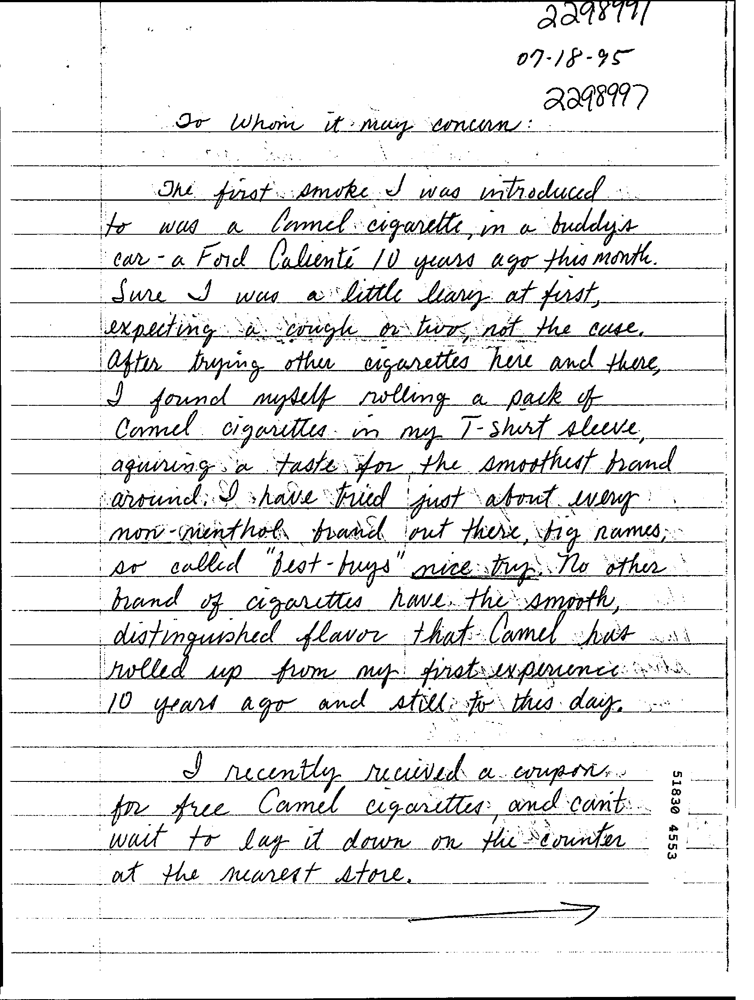 2298991
07-18-95
2298997
To Whom it may concern:
The first smoke I was introduced
to was a Camel cigarette, in a buddys
car - a Ford Calienté 10 years ago this month.
Sure I was a little leary at first,
expecting a cough or two, not the case.
After trying other cigarettes here and there,
I found myself rolling a pack of
Camel cigarettes in my T-shirt sleeve,
aquiring a taste for the smoothest brand
around. I have tried just about every
non-menthol brand out there, big names,
so called "best-buys" nice try. No other
brand of cigarettes have the smooth,
distinguished flavor that Camel has
rolled up from my first experience
10 years ago and still to this day.
I recently recieved a coupon
for free Camel cigarettes, and can't
wait to lay it down on the counter
at the nearest store.
51830 4553